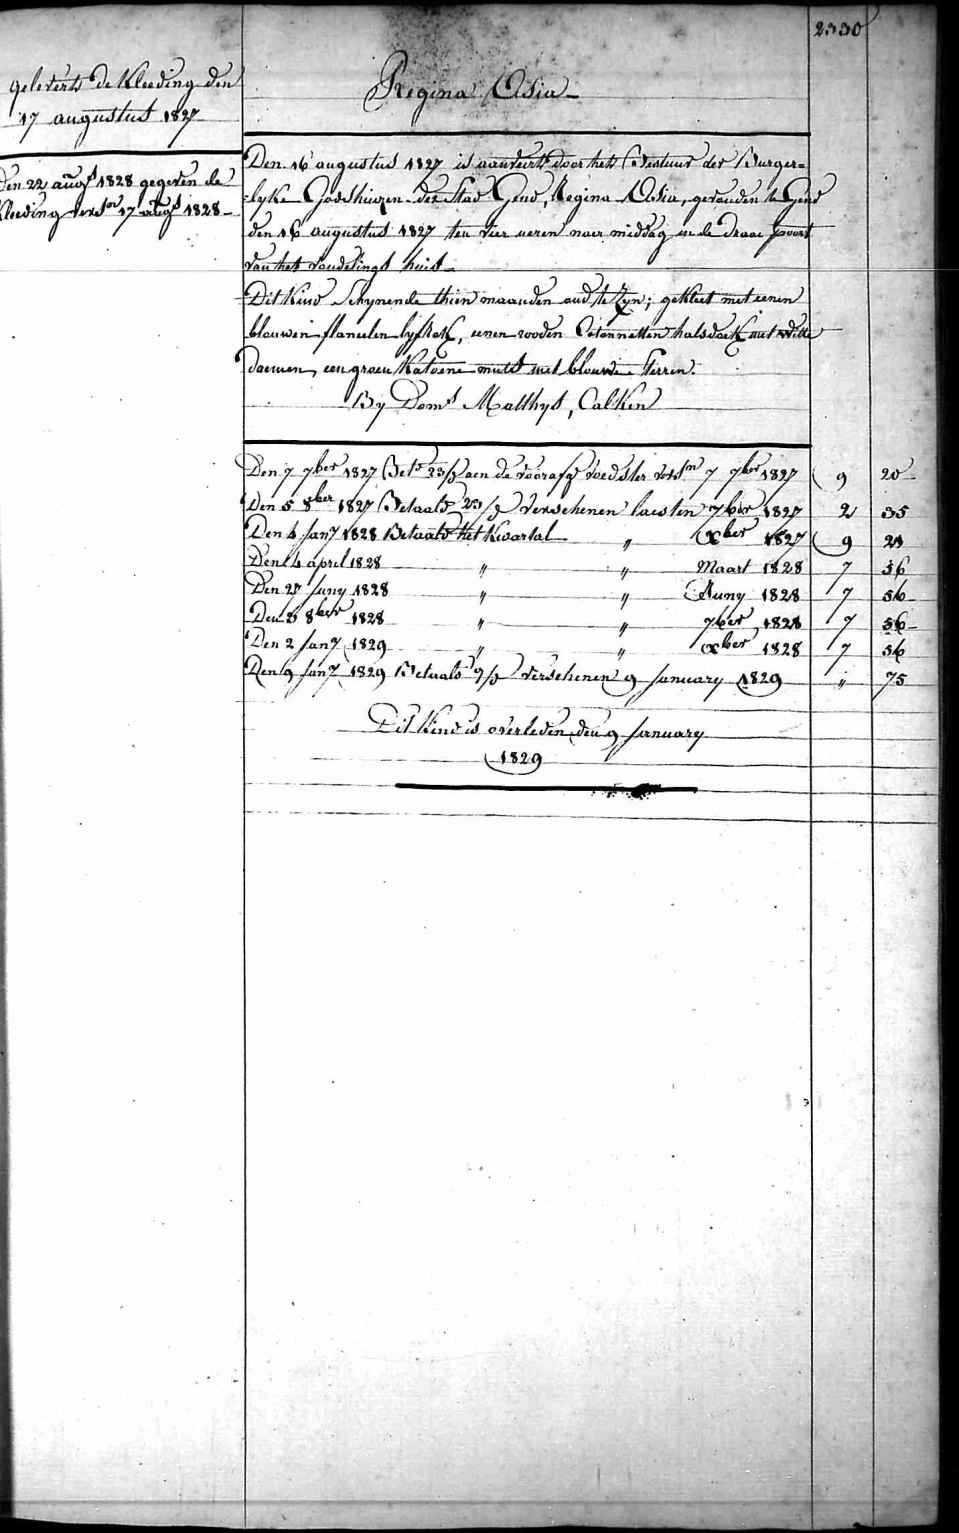 2330
geleverd de Kleeding den
17 augustus 1827
Den 22 augs 1828 gegeven de
Kleeding versn 17 augs 1828
Regina Asia
Den 16 augustus 1827 is aanveird door het Bestuur der Burger=
=lyke Godshuizen der Stad Gend, Regina Asia, gevonden te Gend
den 16 augustus 1827 ten vier ueren naer middag in de Draai poort
van het vondelings huis
Dit Kind Schynende thien maanden oud te Zyn; gekleet met eenen
blauwen flanelen lyfrok, eenen rooden Cotonnetten halsdoek met witte
, een groen Katoene muts met blauwe
By Doms Matthys, Calken
Den 7 7ber 1827 Betd aen de voorafg voedster versn 7 7ber 1827 9 20
Den 5 8ber 1827 Betaald verschenen laesten 7ber 1827 2 35
Den 4 jany 1828 Betaald het Kwartal " xber 1827 9 21
Den 4 april 1828 " " Maart 1828 7 56
Den 27 juny 1828 " " Juny 1828 7 56
Den 3 8ber 1828 " " 7ber 1828 7 56
Den 2 jany 1829 " " xber 1828 7 56
Den 9 jany 1829 Betaald verschenen 9 january 1829 " 75
Dit Kind is overleden den 9 january
1829